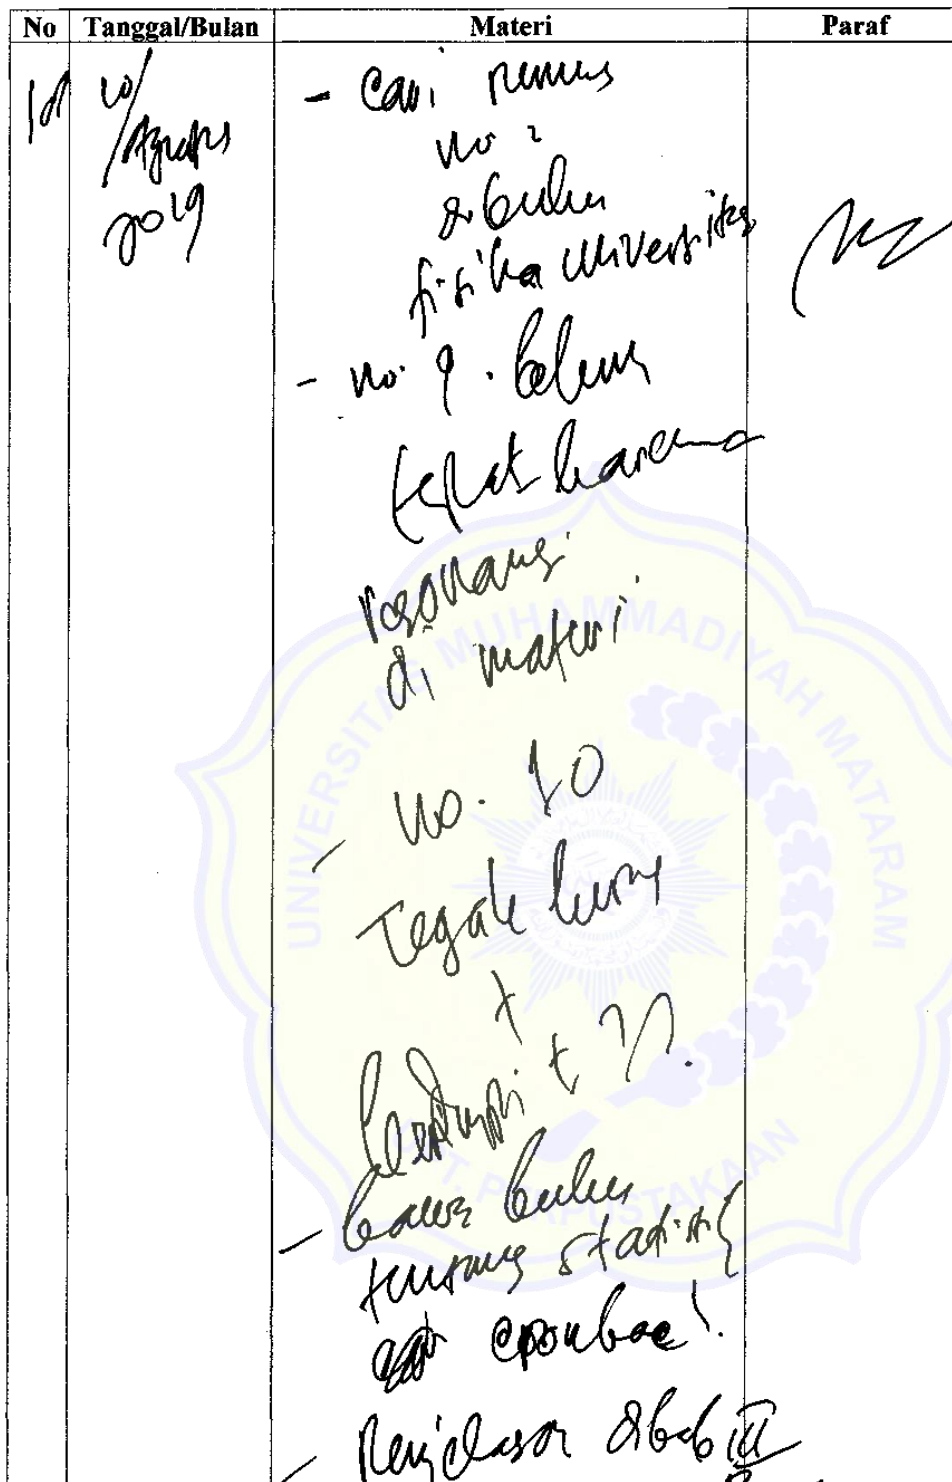 No Tanggal/Bulan Materi Paraf
10/
Agustus
2019
- Cari rumus
no 2
di buku
fisika universitas
- no. 9. belum
tepat karena
resonansi
di materi
- no. 10
Tegak lurus
+
berhimpit + ??.
- bawa buku
tentang statistik
- Penjelasan di bab III
UNIVERSITAS MUHAMMADIYAH MATARAM
UPT. PERPUSTAKAAN